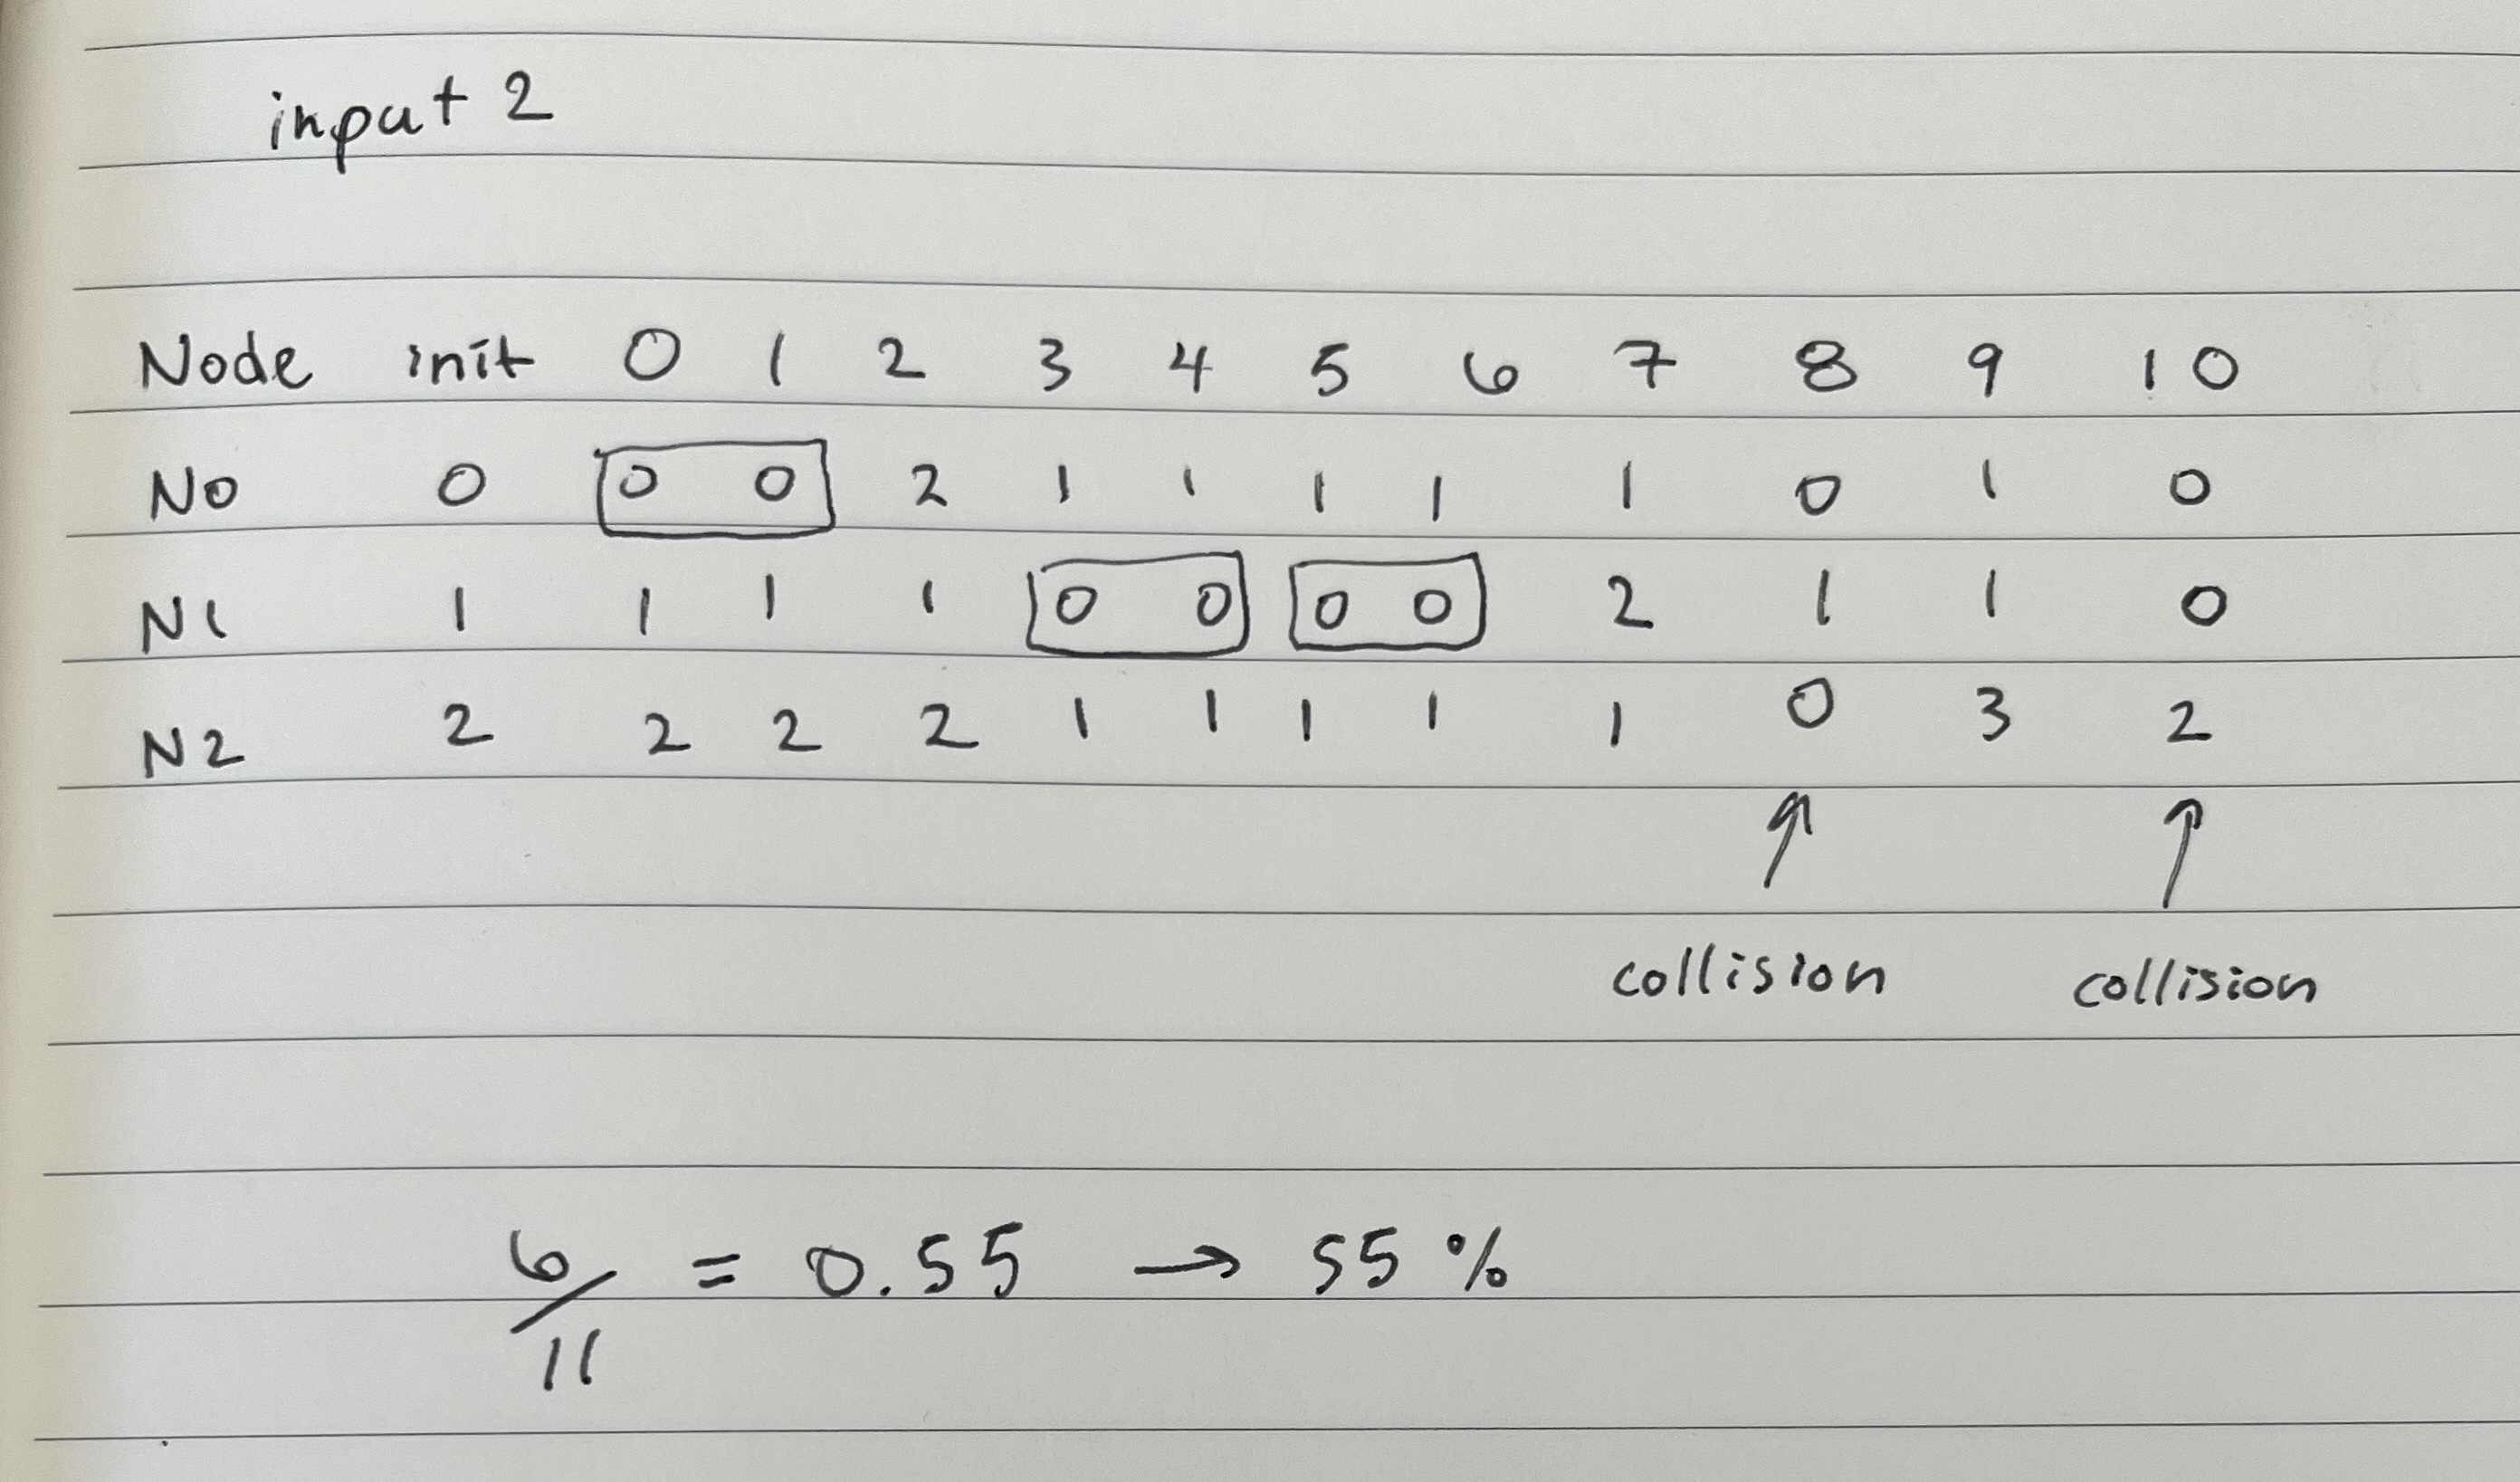 input 2
Node init 0 1 2 3 4 5 6 7 8 9 10
N0 0 0 0 2 1 1 1 1 1 0 1 0
N1 1 1 1 1 0 0 0 0 2 1 1 0
N2 2 2 2 2 1 1 1 1 1 0 3 2
collision collision
6/11 = 0.55 → 55 %